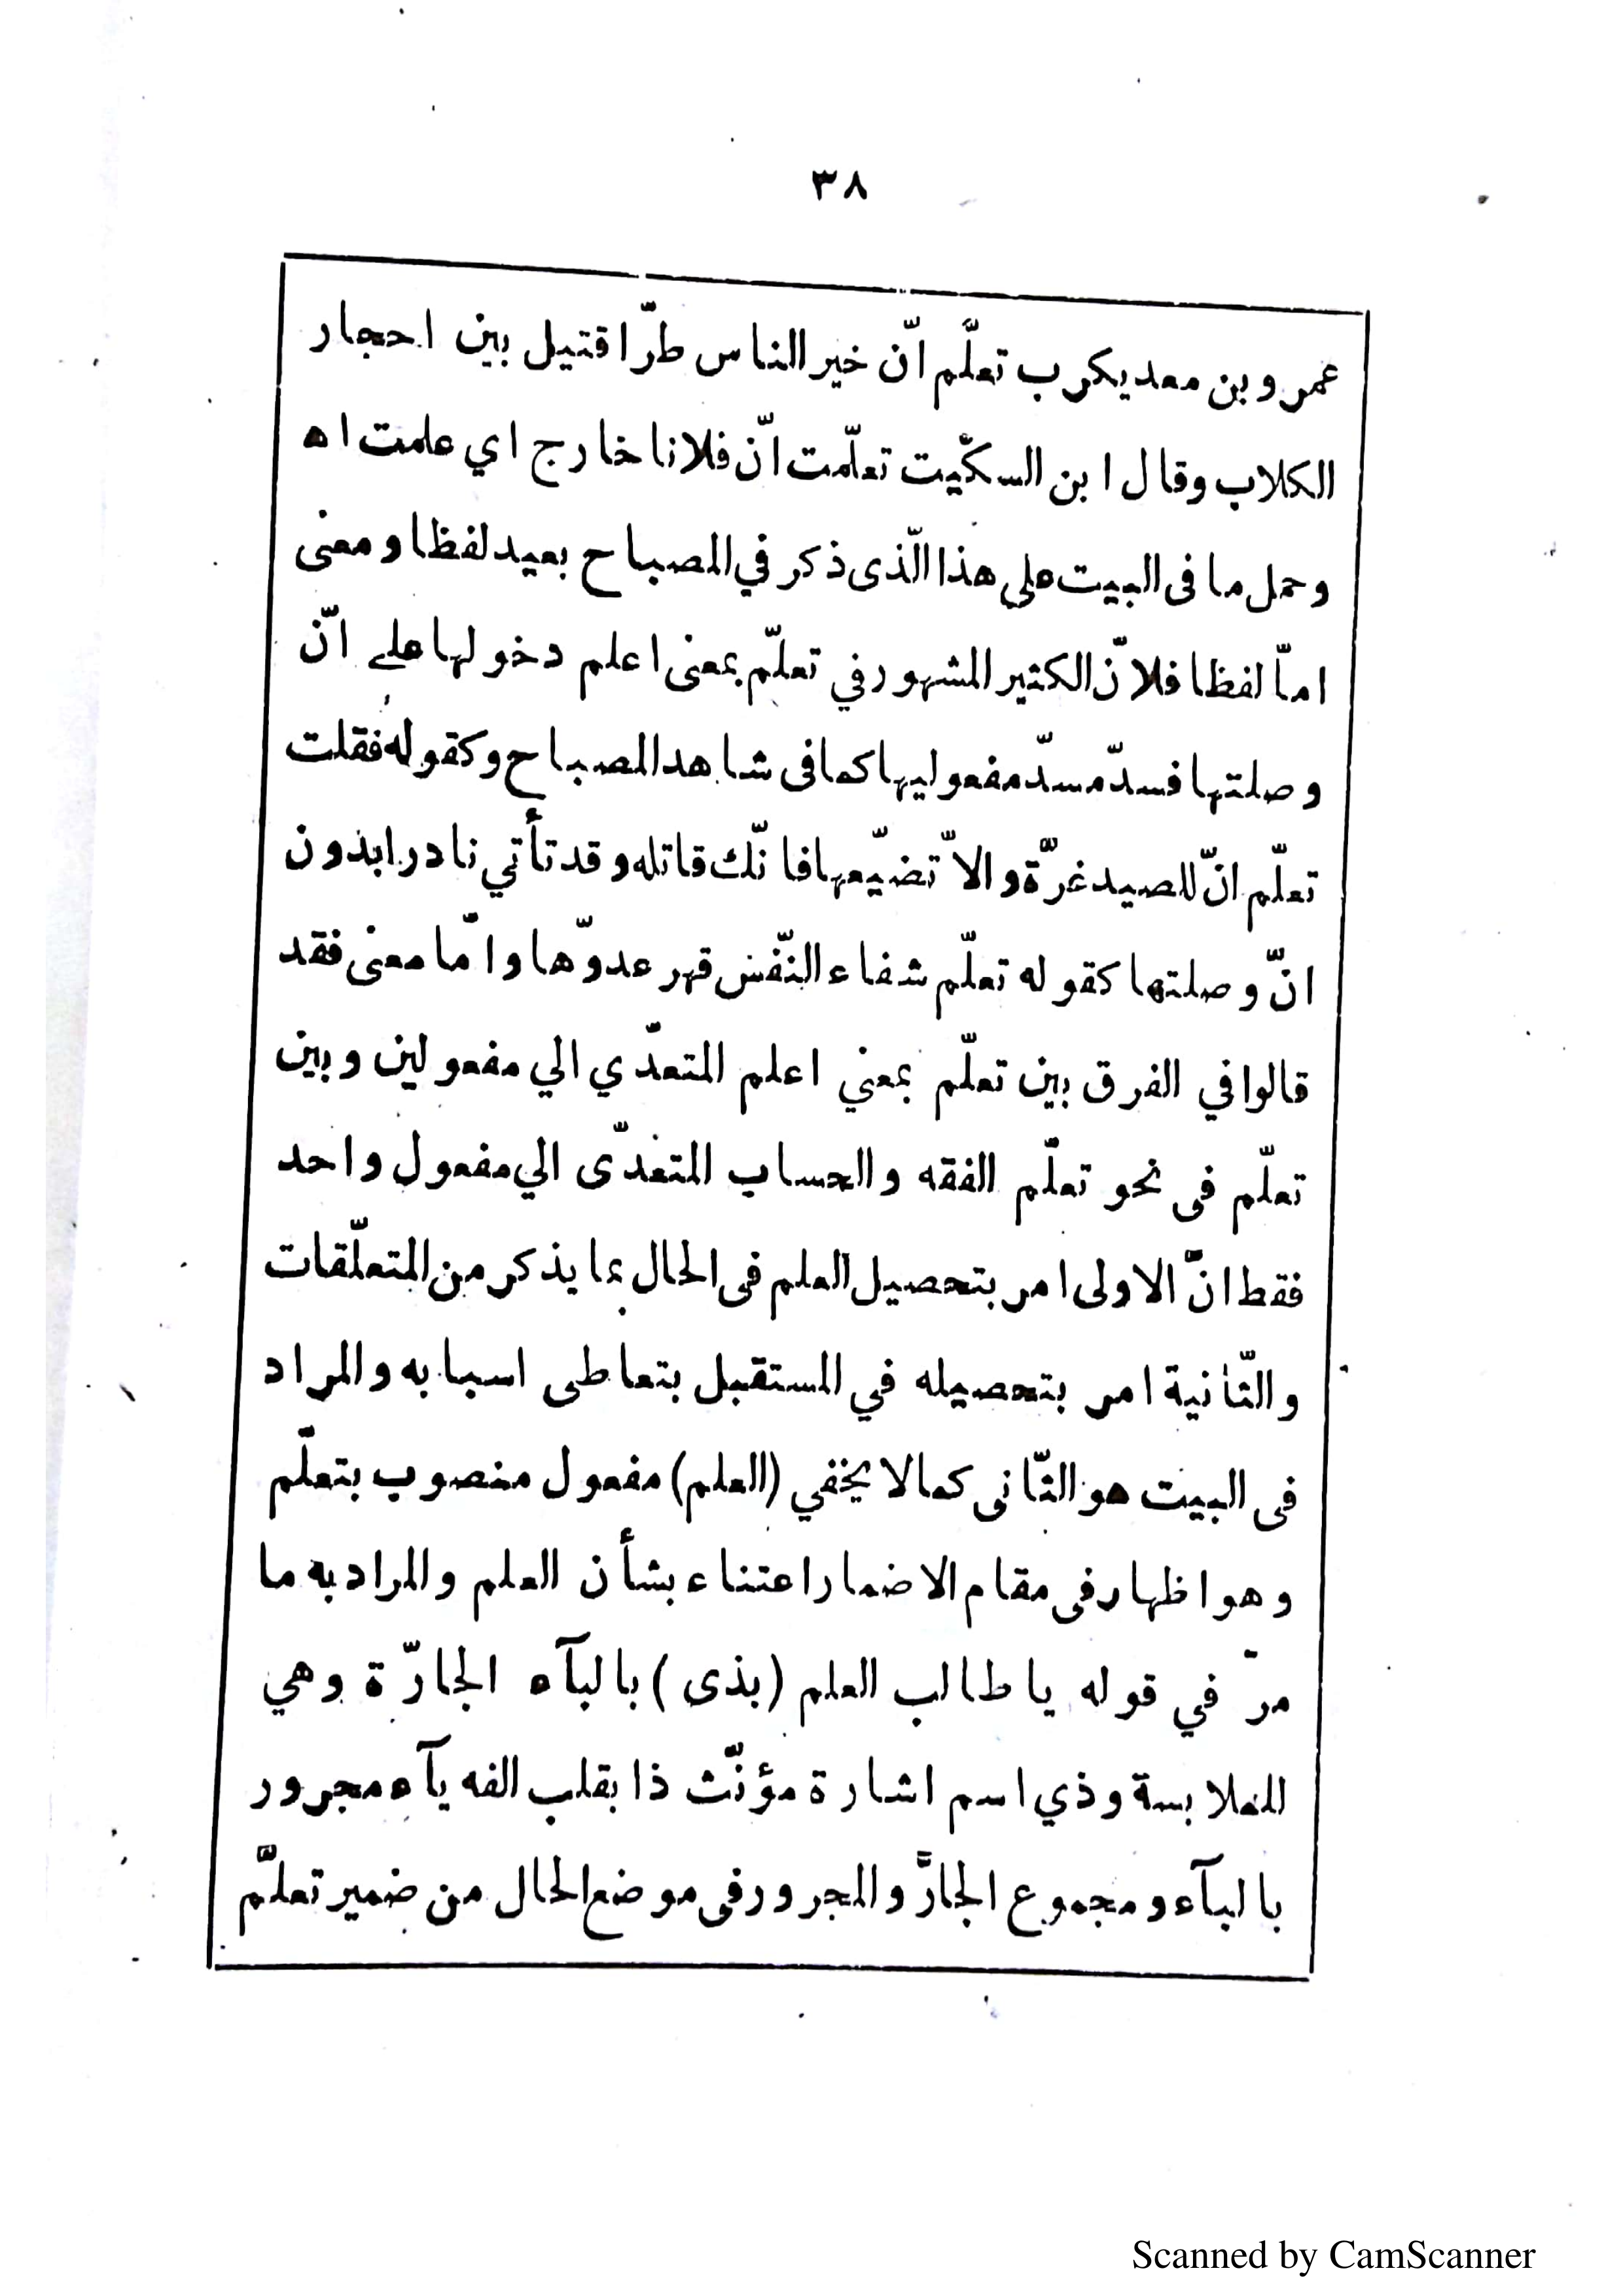 ٣٨
عمرو بن معديكرب تعلّم انّ خير الناس طرّا قتيل بين احجار
الكلاب وقال ابن السكّيت تعلّمت انّ فلانا خارج اي علمت اه
وحمل ما فى البيت على هذا الّذى ذكر في المصباح بعيد لفظا ومعنى
امّا لفظا فلانّ الكثير المشهور في تعلّم بمعنى اعلم دخولها على انّ
وصلتها فسدّ مسدّ مفعوليها كما فى شاهد المصباح وكقوله فقلت
تعلّم انّ للصيد غرّة والاّ تضيّعها فانّك قاتله وقد تأتي نادرا بدون
انّ وصلتها كقوله تعلّم شفاء النّفس قهر عدوّها وامّا معنى فقد
قالوا في الفرق بين تعلّم بمعني اعلم المتعدّي الي مفعولين وبين
تعلّم فى نحو تعلّم الفقه والحساب المتعدّى الي مفعول واحد
فقط انّ الاولى امر بتحصيل العلم فى الحال بما يذكر من المتعلّقات
والثّانية امر بتحصيله في المستقبل بتعاطى اسبابه والمراد
فى البيت هو الثّانى كما لا يخفي (العلم) مفعول منصوب بتعلّم
وهو اظهار فى مقام الاضمار اعتناء بشأن العلم والمراد به ما
مرّ في قوله يا طالب العلم (بذى) بالبآء الجارّة وهي
للملابسة وذي اسم اشارة مؤنّث ذا بقلب الفه يآء مجرور
بالبآء ومجموع الجارّ والمجرور فى موضع الحال من ضمير تعلّم
Scanned by CamScanner